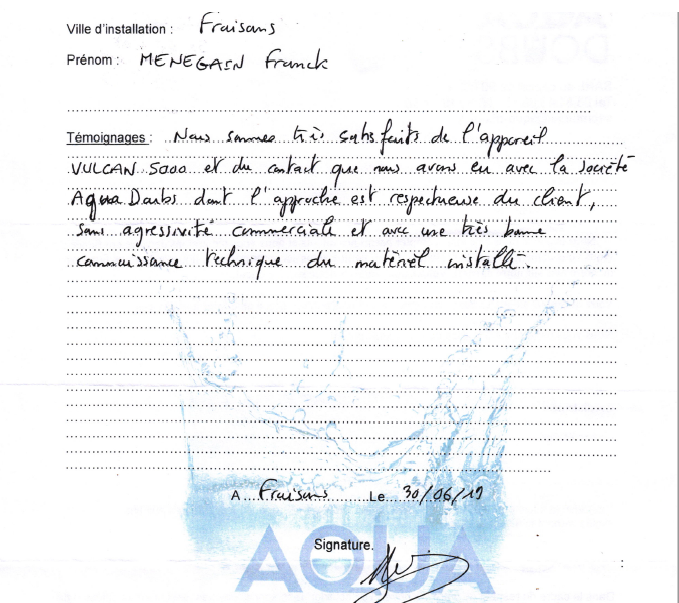 Ville d'installation : Fraisans
Prénom : MENEGAIN Franck
Témoignages : Nous sommes très satisfaits de l'appareil
VULCAN 5000 et du contact que nous avons eu avec la société
Aqua Doubs dont l'approche est respectueuse du client,
sans agressivité commerciale et avec une très bonne
connaissance technique du matériel installé.
A Fraisans Le 30/06/19
Signature.
AQUA